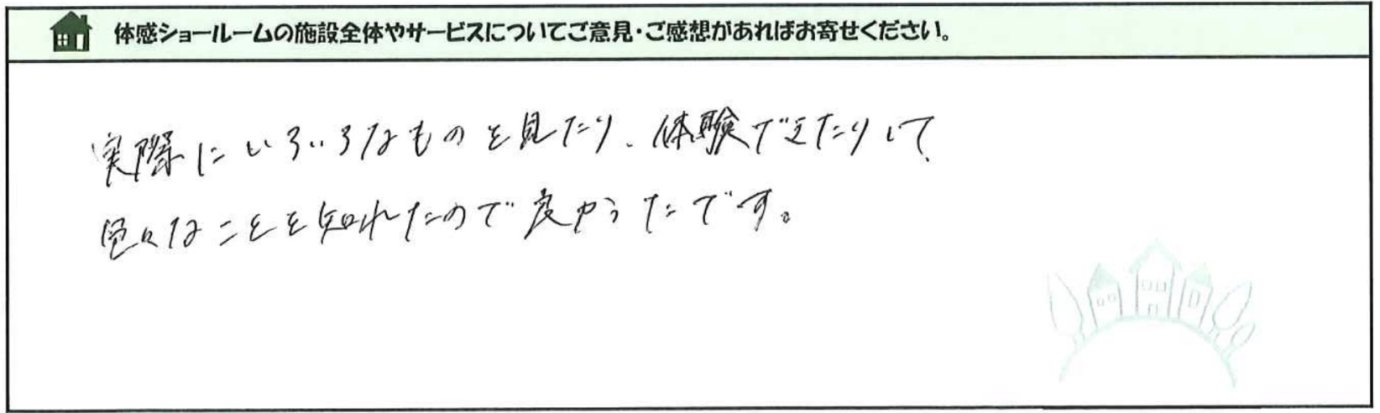 体感ショールームの施設全体やサービスについてご意見・ご感想があればお寄せください。
実際にいろいろなものを見たり、体験できたりして
色々なことを知れたので良かったです。